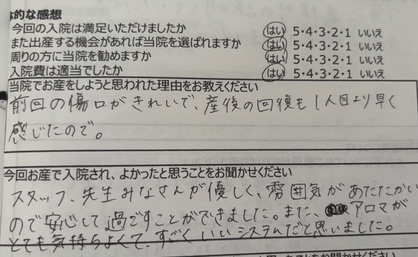 的な感想
今回の入院は満足いただけましたか はい 5・4・3・2・1 いいえ
また出産する機会があれば当院を選ばれますか はい 5・4・3・2・1 いいえ
周りの方に当院を勧めますか はい 5・4・3・2・1 いいえ
入院費は適当でしたか はい 5・4・3・2・1 いいえ
当院でお産をしようと思われた理由をお教えください
前回の傷口がきれいで、産後の回復も1人目より早く
感じたので。
今回お産で入院され、よかったと思うことをお聞かせください
スタッフ、先生みなさんが優しく、雰囲気があたたかい
ので安心して過ごすことができました。また、アロマが
とても気持ちよくて、すごくいいシステムだと思いました。